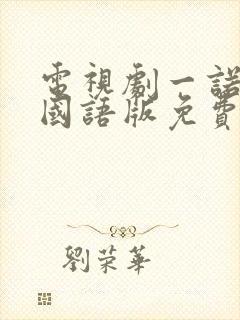 電視劇一諾
國語版免費
劉榮華